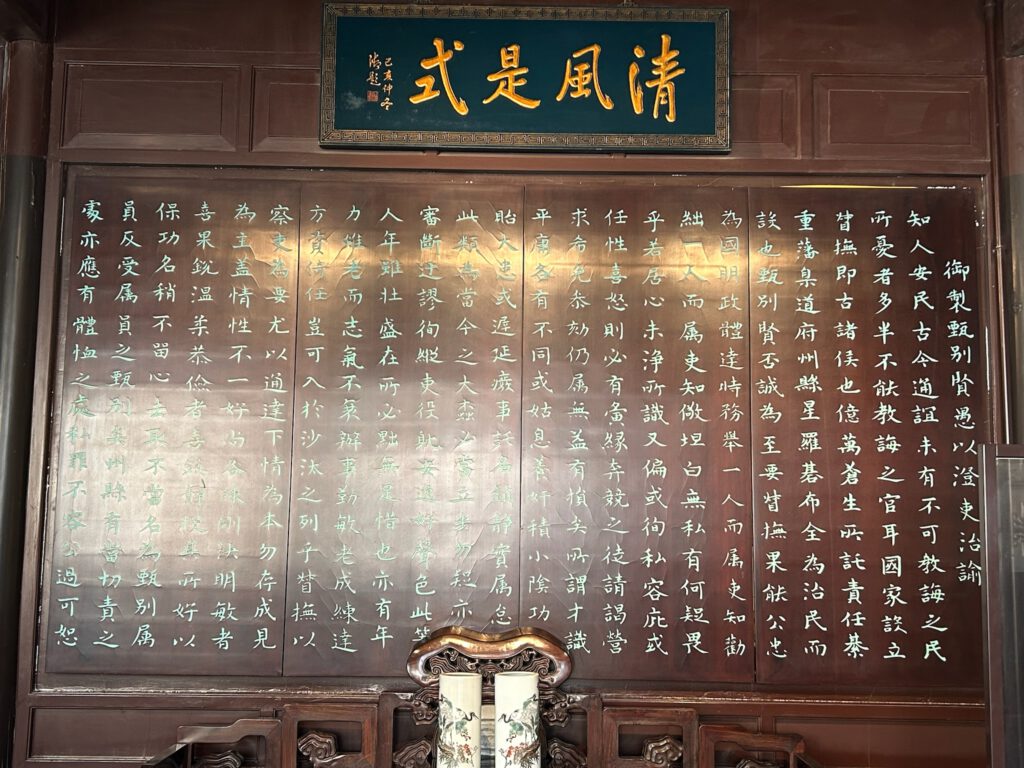 清風是式
己亥仲冬
御製甄別賢愚以澄吏治諭
知人安民古今通誼未有不可教誨之民
所憂者多半不能教誨之官耳國家設立
督撫即古諸侯也億萬蒼生所託責任綦
重藩臬道府州縣星羅碁布全為治民而
設也甄別賢否誠為至要督撫果能公忠
為國明政體達時務舉一人而属吏知勸
絀一人而属吏知儆坦白無私有何疑畏
乎若居心未淨所識又偏或徇私容庇或
任性喜怒則必有夤緣奔競之徒請謁營
求布免叅劾仍属無益有損矣所謂才識
平庸各有不同或姑息養奸積小陰功
貽大患或遲延癈事託為鎮靜實属怠
此類為當今之大蠹必當立劾勿疑亦
審斷迂謬徇縱吏役耽安逸好聲色此等
人年雖壯盛在所必黜無足惜也亦有年
力雖老而志氣不衰辦事勤敏老成練達
方資倚任豈可入於沙汰之列乎督撫以
察吏為要尤以通達下情為本勿存成見
為主蓋情性不一好尚各殊剛决明敏者
喜果銳溫柔恭儉者喜投其所好以
保功名稍不留心去取不當名為甄別属
員反受属員之甄別矣州縣有當切責之
處亦應有體恤之處私罪不容公過可恕